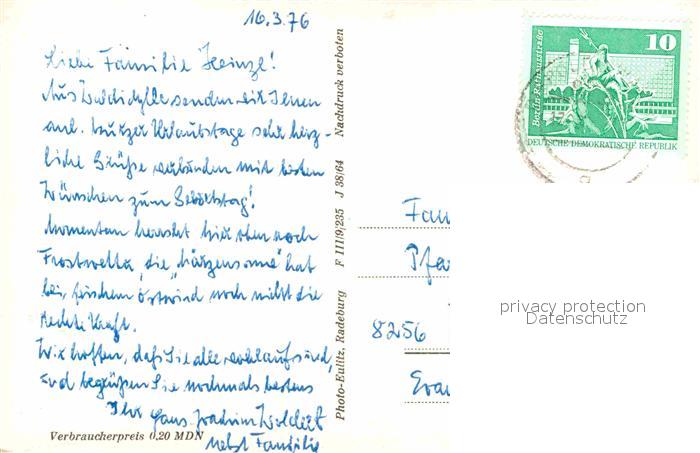 16.3.76
Liebe Familie Heinzl!
Aus Waldidylle senden wir Ihnen
anl. kurzer Urlaubstage sehr herz-
liche Grüße verbunden mit besten
Wünschen zum Geburtstag!
Momentan herrscht hier oben noch
Frostwetter, die „Märzensonne" hat
bei frischem Ostwind noch nicht die
rechte Kraft.
Wir hoffen, daß Sie alle wohlauf sind,
und begrüßen Sie nochmals bestens
Ihr Hans-Joachim
nebst Familie
Verbraucherpreis 0,20 MDN
Photo-Eulitz, Radeburg F III/9/235 J 38/64 Nachdruck verboten
10
Berlin-Rathausstraße
DEUTSCHE DEMOKRATISCHE REPUBLIK
Fam
Pfa
8256
Eva
privacy protection
Datenschutz